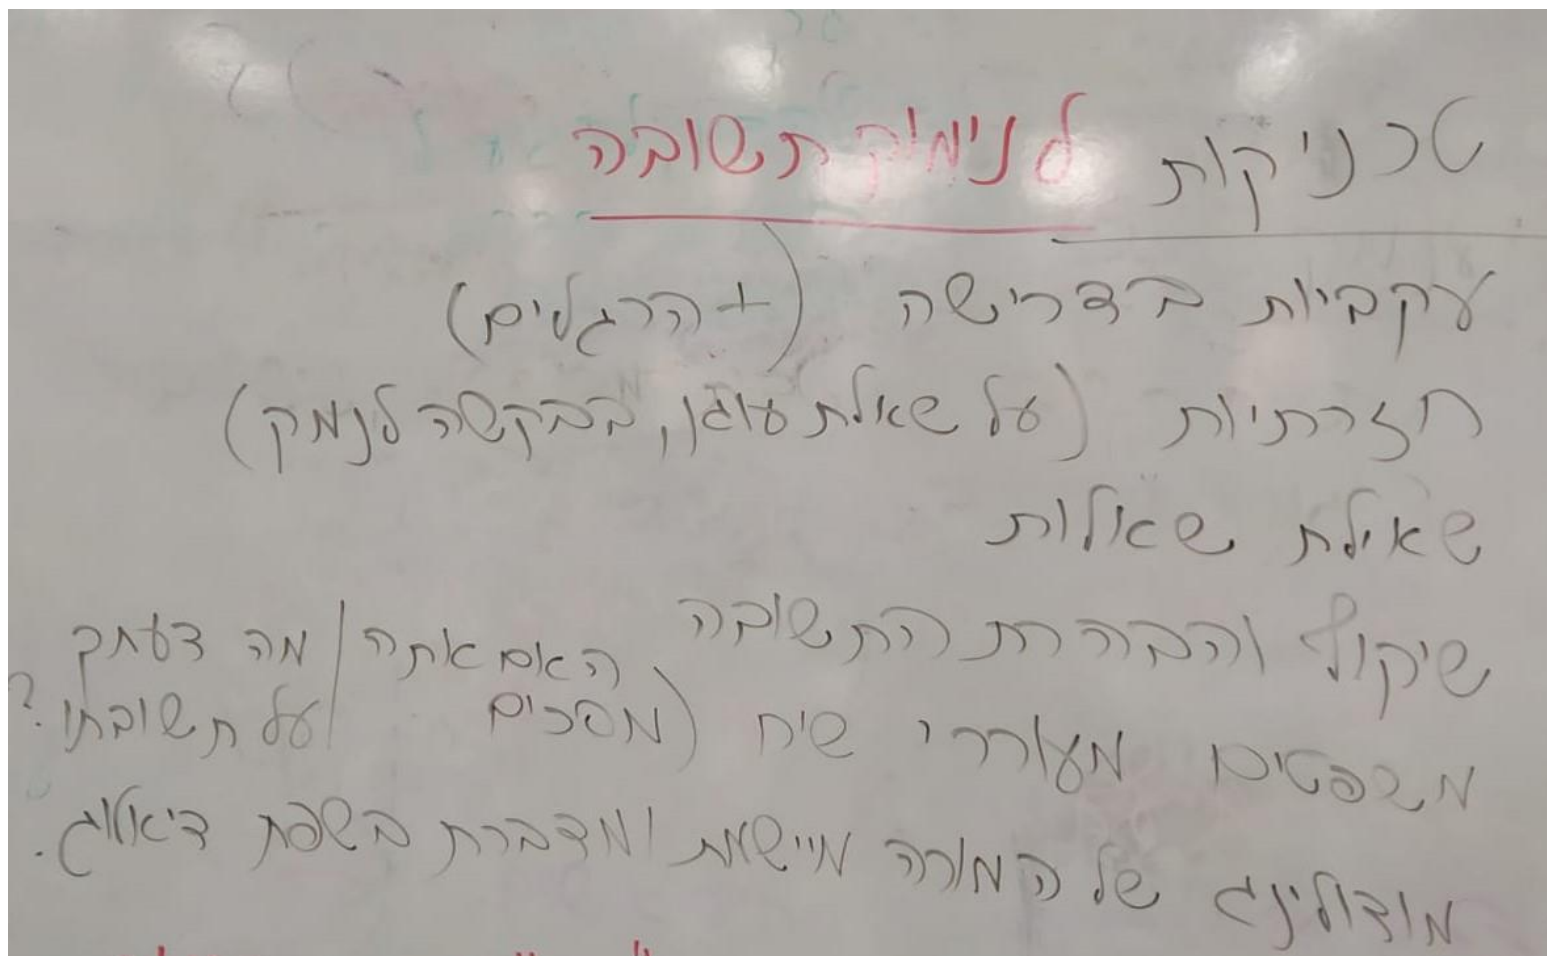 טכניקות לנימוק תשובה
עקביות בדרישה (+הרגלים)
חזרתיות (על שאלת עוגן, בבקשה לנמק)
שאילת שאלות
שיקוף והבהרת התשובה
משפטים מעוררי שיח (האם אתה מסכים / מה דעתך על תשובתו?
מודלינג של המורה מיישמת ומדברת בשפת דיאלוג.